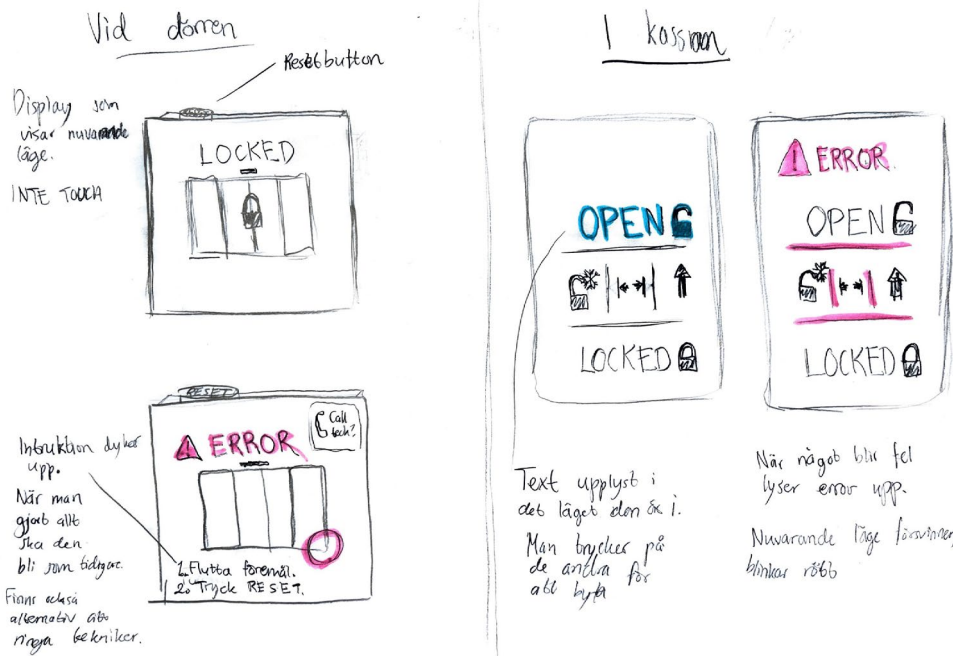 Vid dörren
Reset button
Display som
visar nuvarande
läge.
INTE TOUCH
LOCKED
RESET
Call
tech?
ERROR
Intruktion dyker
upp.
När man
gjort allt
ska den
bli som tidigare.
Finns också
alternativ att
ringa tekniker.
1. Flytta föremål.
2. Tryck RESET.
I kassan
OPEN
LOCKED
ERROR
OPEN
LOCKED
Text upplyst i
det läget den är i.
Man trycker på
de andra för
att byta
När något blir fel
lyser error upp.
Nuvarande läge försvinner,
blinkar rött